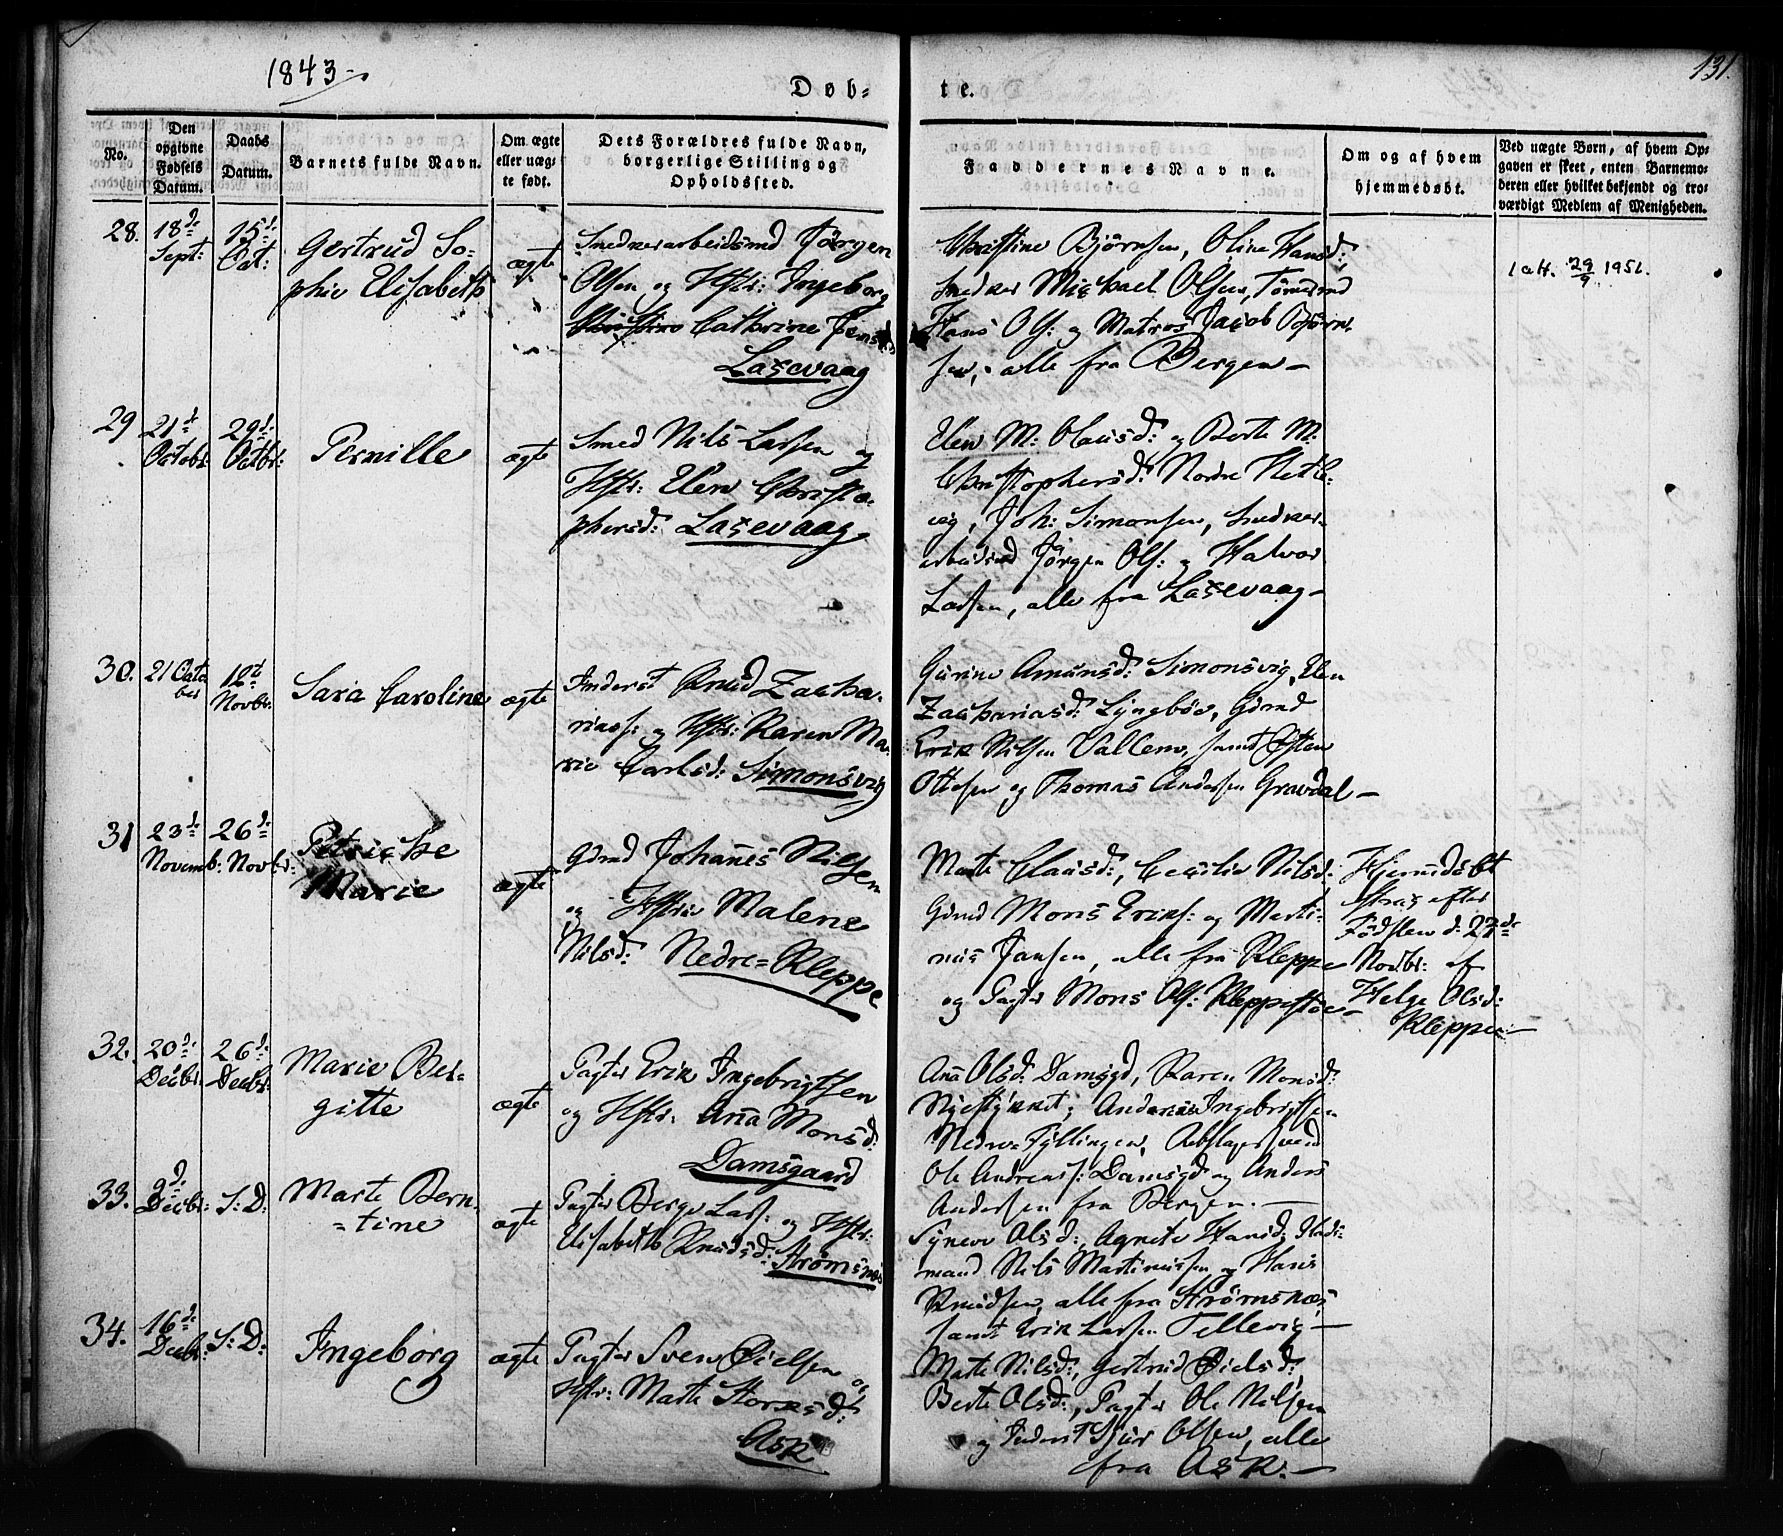 1843
Døb-
te.
131.
No.
Den opgivne Fødsels Datum.
Daabs Datum.
Barnets fulde Navn.
Om ægte eller uæg-te født.
Dets Forældres fulde Navn, borgerlige Stilling og Opholdssted.
Faddernes Navne.
Om og af hvem hjemmedøbt.
Ved uægte Børn, af hvem Op-
gaven er skeet, enten Barnemo-
deren eller hvilket bekjendt og tro-
værdigt Medlem af Menigheden.
28.
18de Sept:
15de Oct:
Gertrud So-
phie Elisabeth
ægte
Snedkerarbeidsmd Jørgen
Olsen og Hstr: Ingeborg
Cathrine Jensd
Laxevaag
Christine Bjørnsen, Oline Hansd:
Snedker Michael Olsen, Tømmermd
Hans Ols: og Matros Jacob Bjørn-
sen, alle fra Bergen
1 att. 29/9 1951.
29
21de Octobr:
29de Octbr:
Pernille
ægte
Smed Nils Larsen og
Hstr: Elen Christo-
phersd: Laxevaag
Elen M: Olausd: og Berte M:
Christophersd: Nordre Hetle-
vig, Joh: Simonsen, Snedker-
arbeidsmd Jørgen Ols: og Halvor
Larsen, alle fra Laxevaag
30.
21 October
12te Novbr:
Sara Caroline
ægte
Inderst Knud Zacha-
riass: og Hstr: Karen Ma-
rie Carlsd: Simonsvig
Gurine Amunsd: Simonsvig, Elen
Zachariasd: Lyngbøe, Gdmd
Erik Nilsen Vallem, samt Østen
Ottesen og Thomas Andersen Gravdal
31
23de Novemb:
26de Novbr:
Petriche
Marie
ægte
Gdmd Johannes Nilsen
og Hstr: Malene
Nilsd: Nedre-Kleppe
Marte Clausd:, Cecilie Nilsd:
Gdmd Mons Eriks: og Marti-
nus Jansen, alle fra Kleppe
og Pagter Mons Ols: Kleppestøe
Hjemmedøbt
strax efter
Fødslen d: 23de
Novbr: af
Helge Olsd:
Kleppe
32.
20de Decbr:
26de Decbr:
Marie Ber-
gitte
ægte
Pagter Erik Ingebrigtsen
og Hstr: Anna Monsd:
Damsgaard
Anna Olsd: Damsgd, Karen Monsd:
Nyestykket, Andreas Ingebrigtsen
Nedre Fyllingen, Rebslagersvend
Ole Andreass: Damsgd og Anders
Andersen fra Bergen.
33.
9de Decbr:
S: D:
Marte Bern-
tine
ægte
Pagter Berge Lars: og Hstr:
Elisabeth Knudsd: Strømsnæs
Synneve Olsd:, Agnete Hansd:, Gads-
mand Nils Martinussen og Hans
Knudsen, alle fra Strømsnæs
samt Erik Larsen Tellevig
34.
16de Decbr:
S: D:
Ingeborg
ægte
Pagter Sven Øielsen og
Hstr: Marte Storksd:
Ask
Marte Nilsd:, Gertrud Øielsd:,
Berte Olsd:, Pagter Ole Nilsen
og Inderst Sjur Olsen, alle
fra Ask.